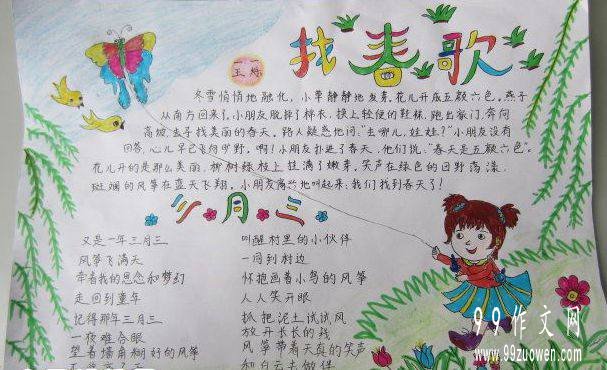 找春歌
冬雪悄悄地融化，小草静静地发芽。花儿开成五颜六色。燕子
从南方回来了。小朋友脱掉了棉衣，换上轻便的鞋袜，跑出家门，奔向
高坡，去寻找美丽的春天。路人疑惑地问："去哪儿，娃娃？"小朋友没有
回答，心儿早已飞向野外。啊！小朋友扑进了春天，他们说："春天是五颜六色"。
花儿开的是那么美丽，柳树绿枝上挂满了嫩芽。笑声在绿色的田野荡漾，
斑斓的风筝在蓝天飞翔。小朋友高兴地叫起来：我们找到春天了！
岁月三
又是一年三月三
风筝飞满天
带着我的思念和梦幻
走回到童年
记得那年三月三
一夜难合眼
望着墙角糊好的风筝
叫醒村里的小伙伴
一同到村边
怀抱画着小鸟的风筝
人人笑开眼
抓把泥土试试风
放开长长的线
风筝带着天真的笑声
和白云去做伴
99作文网
www.99zuowen.com